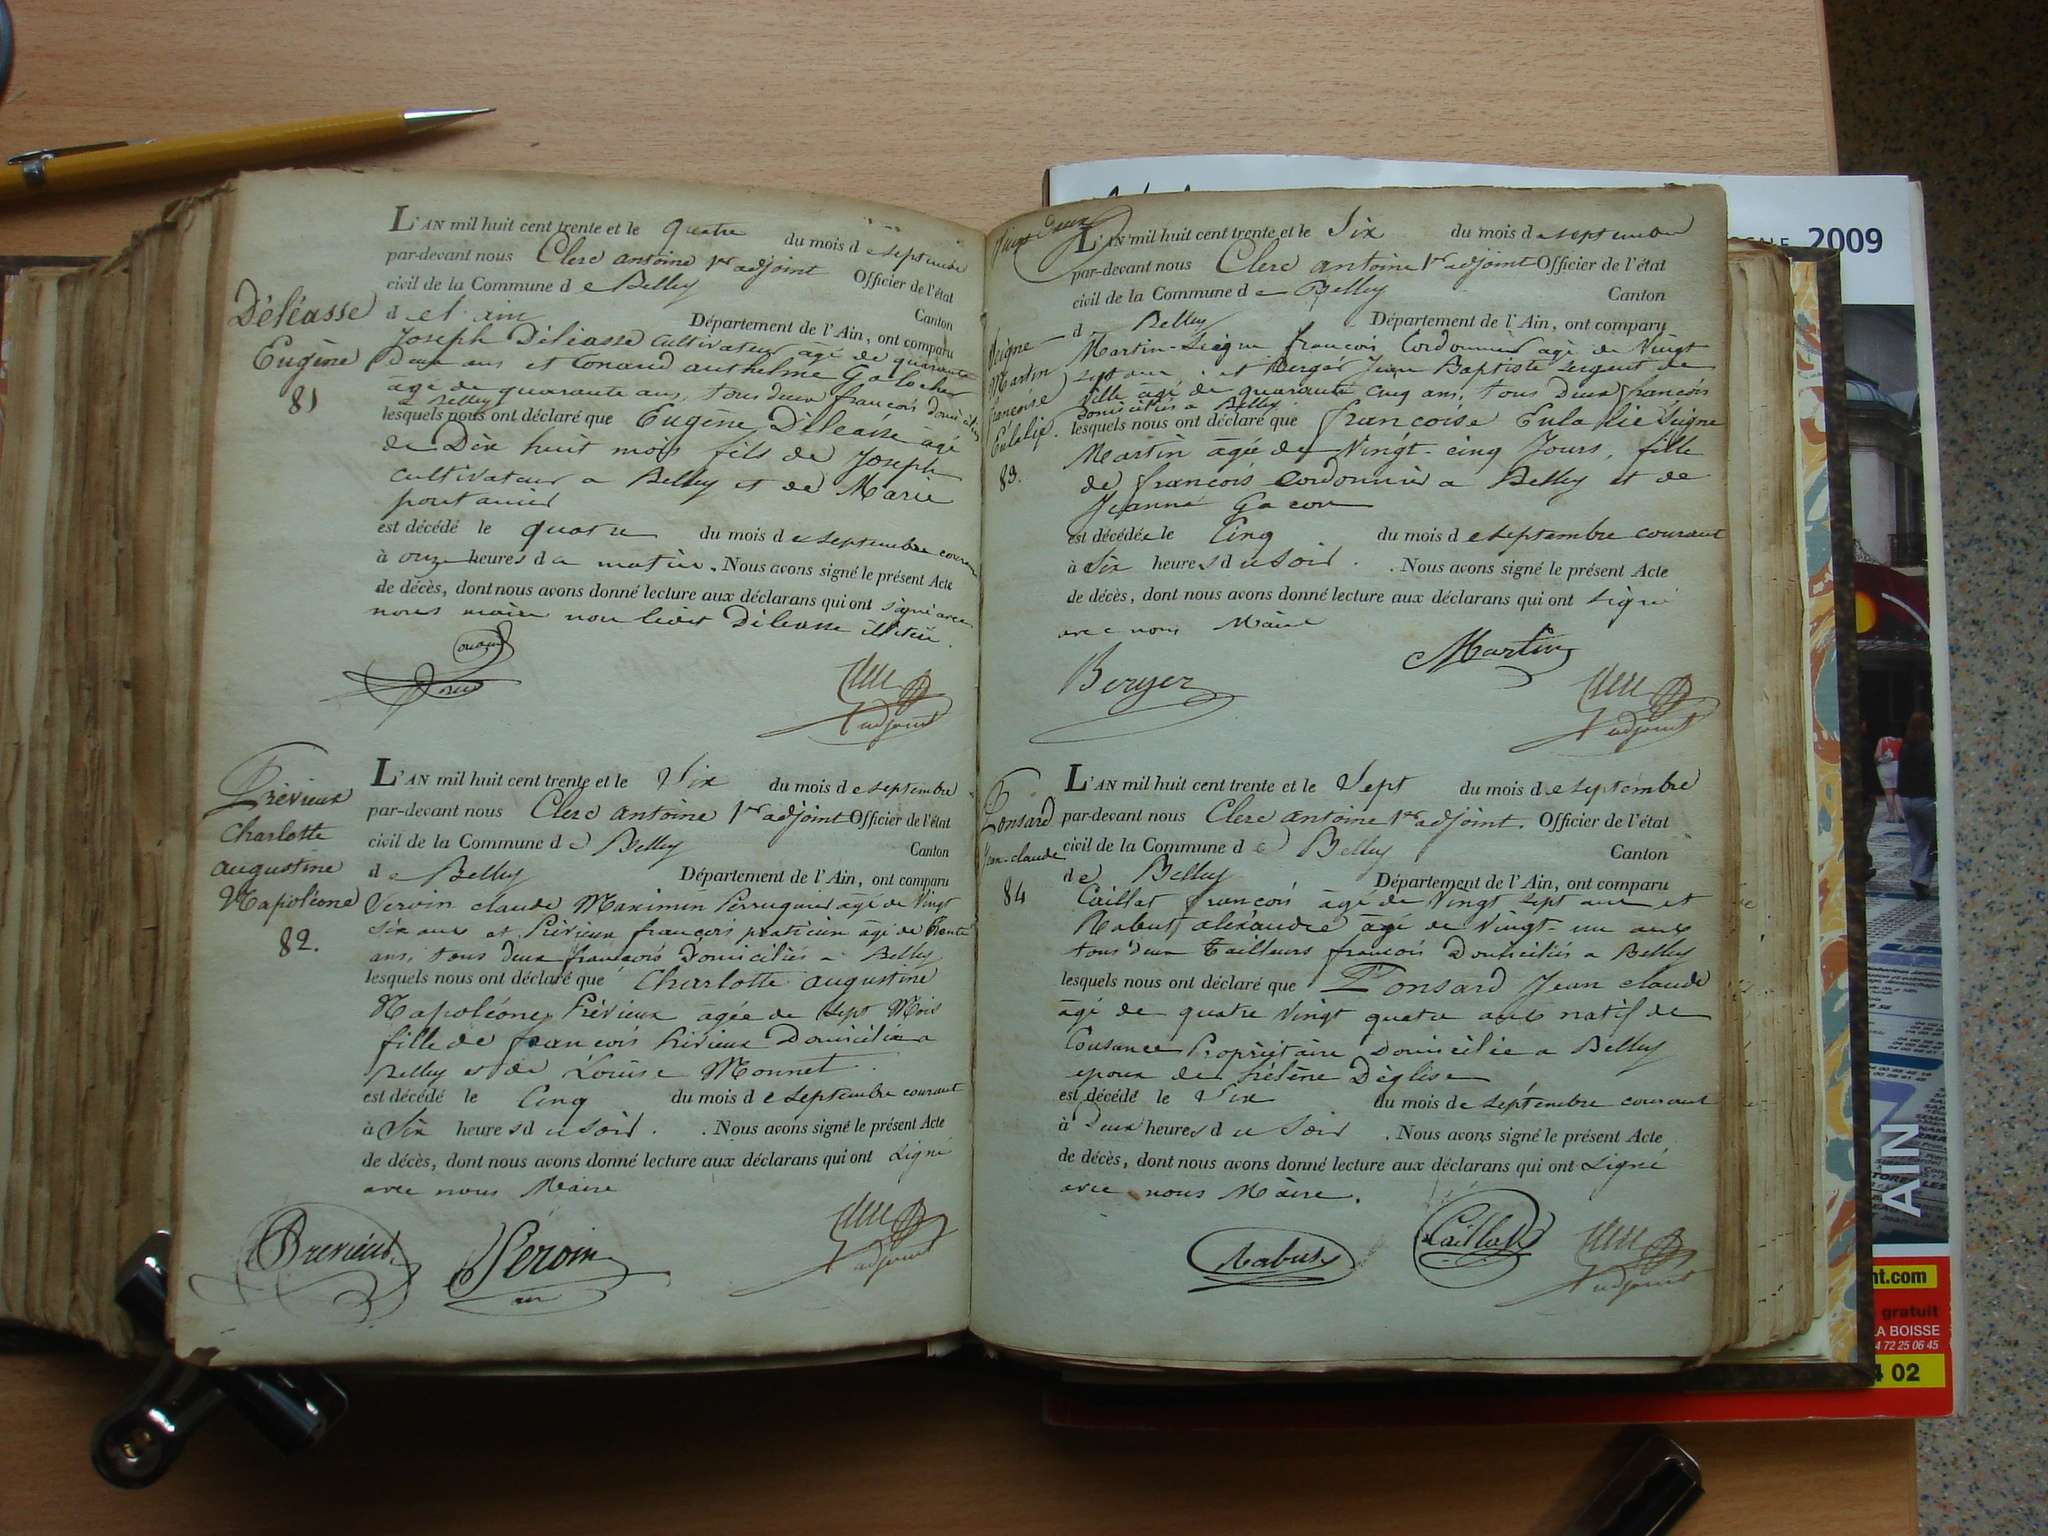 L'AN mil huit cent trente et le quatre du mois de septembre
par-devant nous Clerc antoine 1er adjoint Officier de l'état
civil de la Commune de Belley Canton
d Département de l'Ain, ont comparu
Déléasse
Eugène
81
Joseph Déléasse cultivateur âgé de quarante
Deux ans et Conand anthelme
âgé de quarante ans, tous deux francois domiciliés
a Belley
lesquels nous ont déclaré que Eugène Déléasse âgé
de Dix huit mois fils de Joseph
cultivateur a Belley et de Marie
est décédé le quatre du mois de septembre courant
à onze heures du matin. Nous avons signé le présent Acte
de décès, dont nous avons donné lecture aux déclarans qui ont signé avec
nous maire non ledit Déléasse
adjoint
Prévieux
Charlotte
augustine
Napoléone
82.
L'AN mil huit cent trente et le Six du mois de septembre
par-devant nous Clerc antoine 1er adjoint Officier de l'état
civil de la Commune de Belley Canton
de Belley Département de l'Ain, ont comparu
claude Maximin Perruquier agé de Vingt
Six ans et Prévieux francois praticien âgé de trente
ans, tous deux francois Domiciliés a Belley
lesquels nous ont déclaré que Charlotte augustine
Napoléone Prévieux agée de Sept Mois
fille de francois Prévieux Domicilié a
Belley et de Louise Monnet.
est décédé le Cinq du mois de septembre courant
à Six heures du Soir. Nous avons signé le présent Acte
de décès, dont nous avons donné lecture aux déclarans qui ont signé
avec nous Maire
Prévieux
adjoint
Vingt Deux
L'AN mil huit cent trente et le Six du mois de septembre
par-devant nous Clerc antoine 1er adjoint Officier de l'état
civil de la Commune de Belley Canton
d Belley Département de l'Ain, ont comparu
Martin
francoise
Eulalie.
83.
Martin francois Cordonnier âgé de Vingt
Sept ans et Berger Jean Baptiste sergent de
Ville âgé de quarante cinq ans, tous Deux francois
Domiciliés a Belley
lesquels nous ont déclaré que francoise Eulalie
Martin âgée de Vingt-cinq Jours, fille
de francois cordonnier a Belley et de
Jeanne Gacon
est décédée le Cinq du mois de septembre courant
à Six heures du Soir. Nous avons signé le présent Acte
de décès, dont nous avons donné lecture aux déclarans qui ont signé
avec nous Maire
Martin
Berger
adjoint
Ponsard
Jean-claude
84
L'AN mil huit cent trente et le Sept du mois de septembre
par-devant nous Clerc antoine 1er adjoint. Officier de l'état
civil de la Commune de Belley Canton
de Belley Département de l'Ain, ont comparu
Caillat francois âgé de Vingt Sept ans et
Rabut alexandre âgé de Vingt-un ans
tous deux Tailleurs francois Domiciliés a Belley
lesquels nous ont déclaré que Ponsard Jean claude
âgé de quatre Vingt quatre ans natif de
Cousance Propriétaire Domicilié a Belley
epoux de Hélène Déglise
est décédé le Six du mois de septembre courant
à Deux heures du Soir. Nous avons signé le présent Acte
de décès, dont nous avons donné lecture aux déclarans qui ont signé
avec nous Maire.
Rabut
Caillat
adjoint
2009
AIN
nt.com
gratuit
LA BOISSE
4 72 25 06 45
4 02